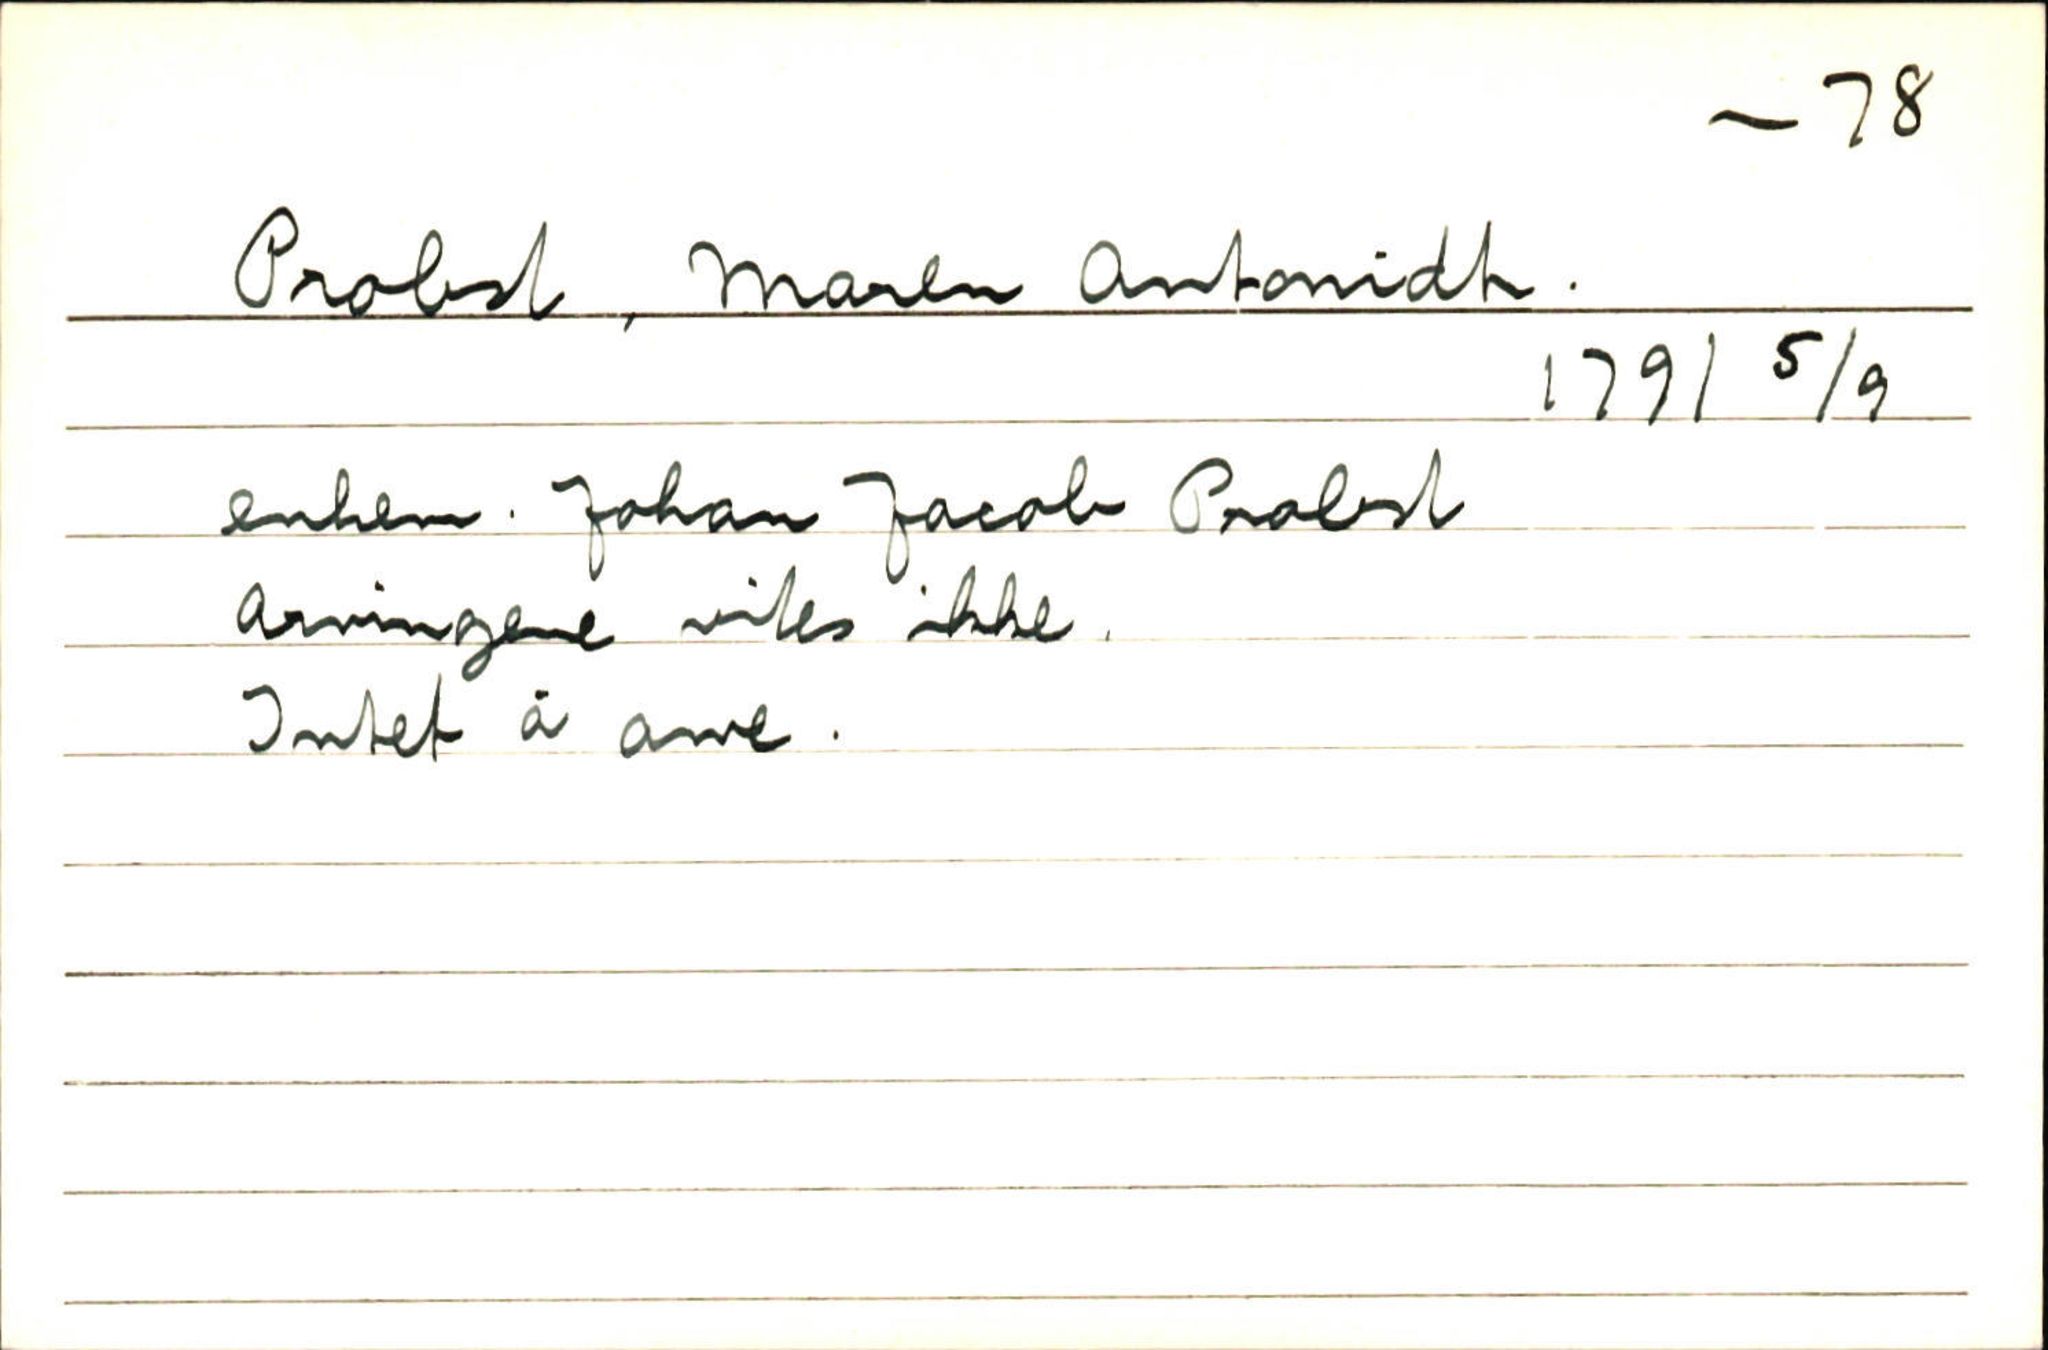 ~ 78
Probst, Maren Antonidtr.
1791 5/9
enkem. Johan Jacob Probst
Arvingene vites ikke.
Intet å arve.